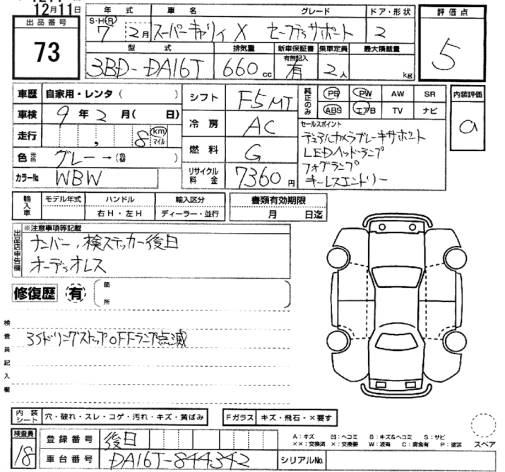 12月11日
出品番号 年式 車名 グレード ドア・形状 評価点
73 S・H・R 7 2月 スーパーキャリイ X セーフティサポート 2 5
型式 排気量 新車保証書 乗車定員 最大積載量
有無記入
3BD-DA16T 660cc 有 2人 kg
車歴 自家用・レンタ( ) シフト F5MT 純正のみ PS PW AW SR 内装評価
ABS エアB TV ナビ a
車検 9年2月( 日) 冷房 AC セールスポイント
走行 , 8 km マイル デュアルカメラブレーキサポート
LEDヘッドランプ
色 グレー→( ) 燃料 G フォグランプ
カラーNo WBW リサイクル料金 7360円 キーレスエントリー
輸入車 モデル年式 ハンドル 輸入区分 書類有効期限
右H・左H ディーラー・並行 月 日迄
※注意事項等記載
ナンバー,検ステッカー後日
オーディオレス
修復歴 有 箇所
検査員記入欄
アイドリングストップOFFランプ点滅
内装シート 穴・破れ・スレ・コゲ・汚れ・キズ・黄ばみ Fガラス キズ・飛石・×要す スペア
検査員 18 登録番号 後日
車台番号 DA16T-844342 シリアルNo.
A：キズ B：キズ&ヘコミ S：サビ
××：交換済 ×：交換要 W：波有 C：腐食有 P：塗装